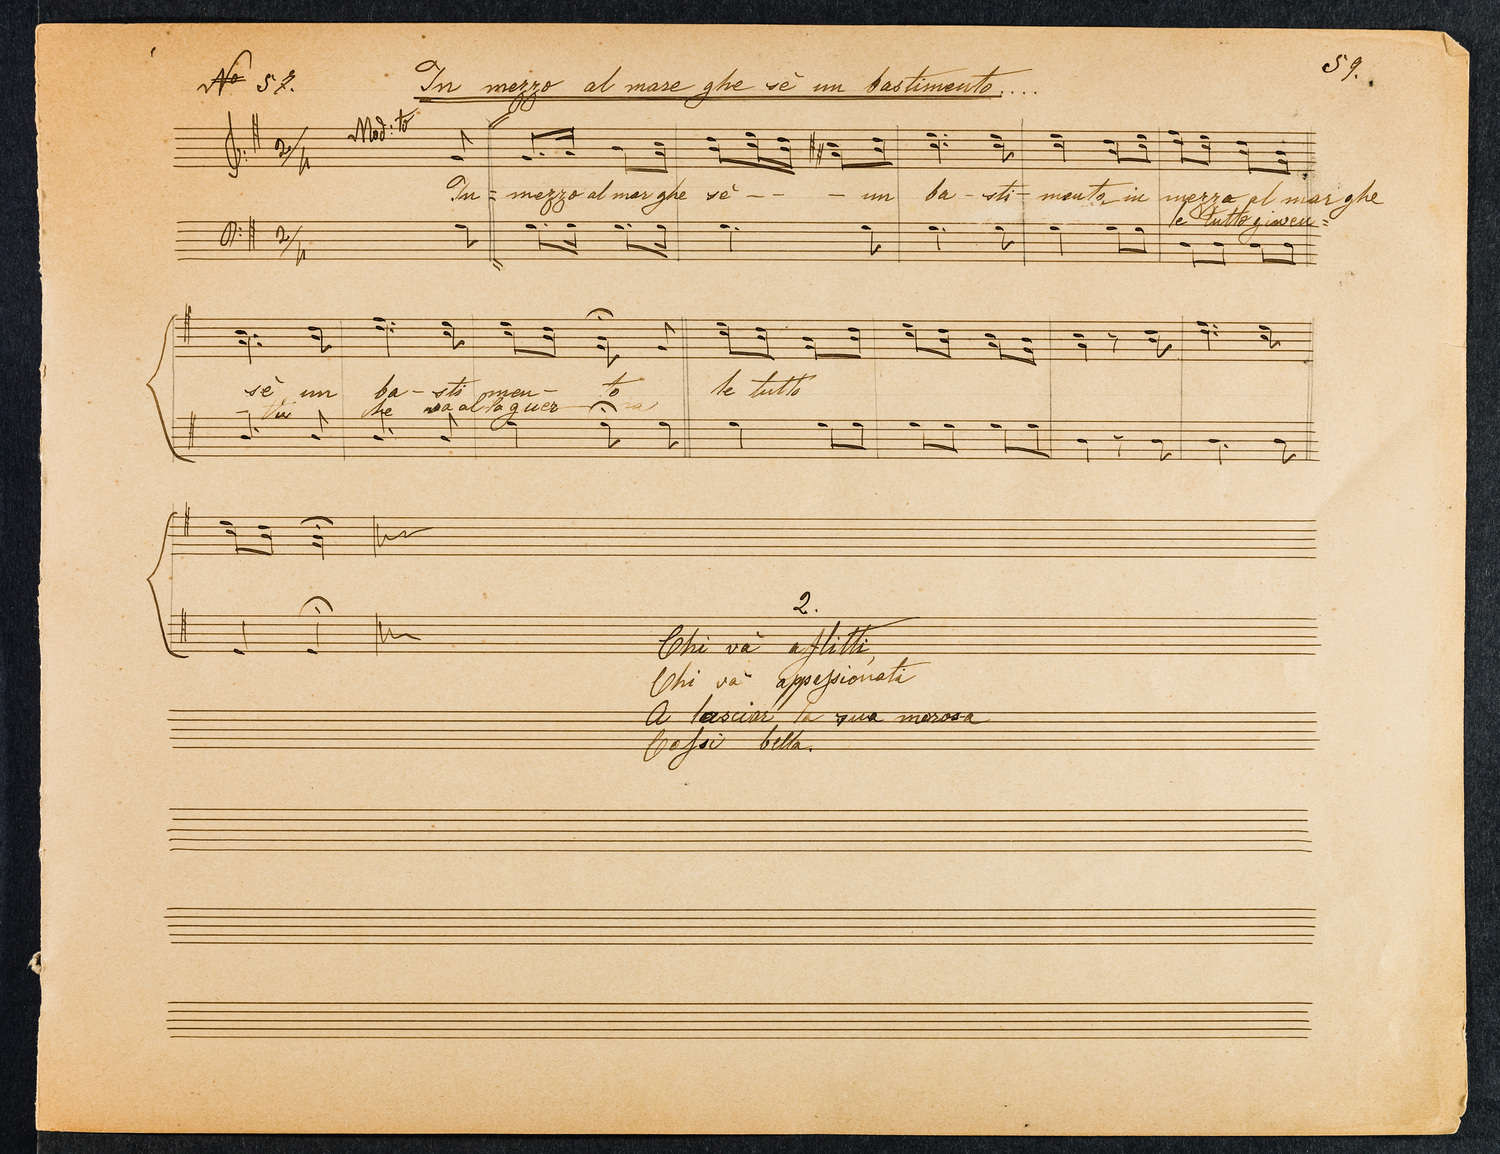 No 57.
In mezzo al mare ghe sè un bastimento....
59.
Mod:to
2/4
In = mezzo al mar ghe sè - - - un ba - sti - mento, in mezzo al mar ghe
le tutto gioven=
2/4
sè un ba - sti men - to le tutto
- tù che va al la guer - ra
2.
Chi và aflitti,
Chi và appassionati
A lasciar la sua morosa
Cossi bella.